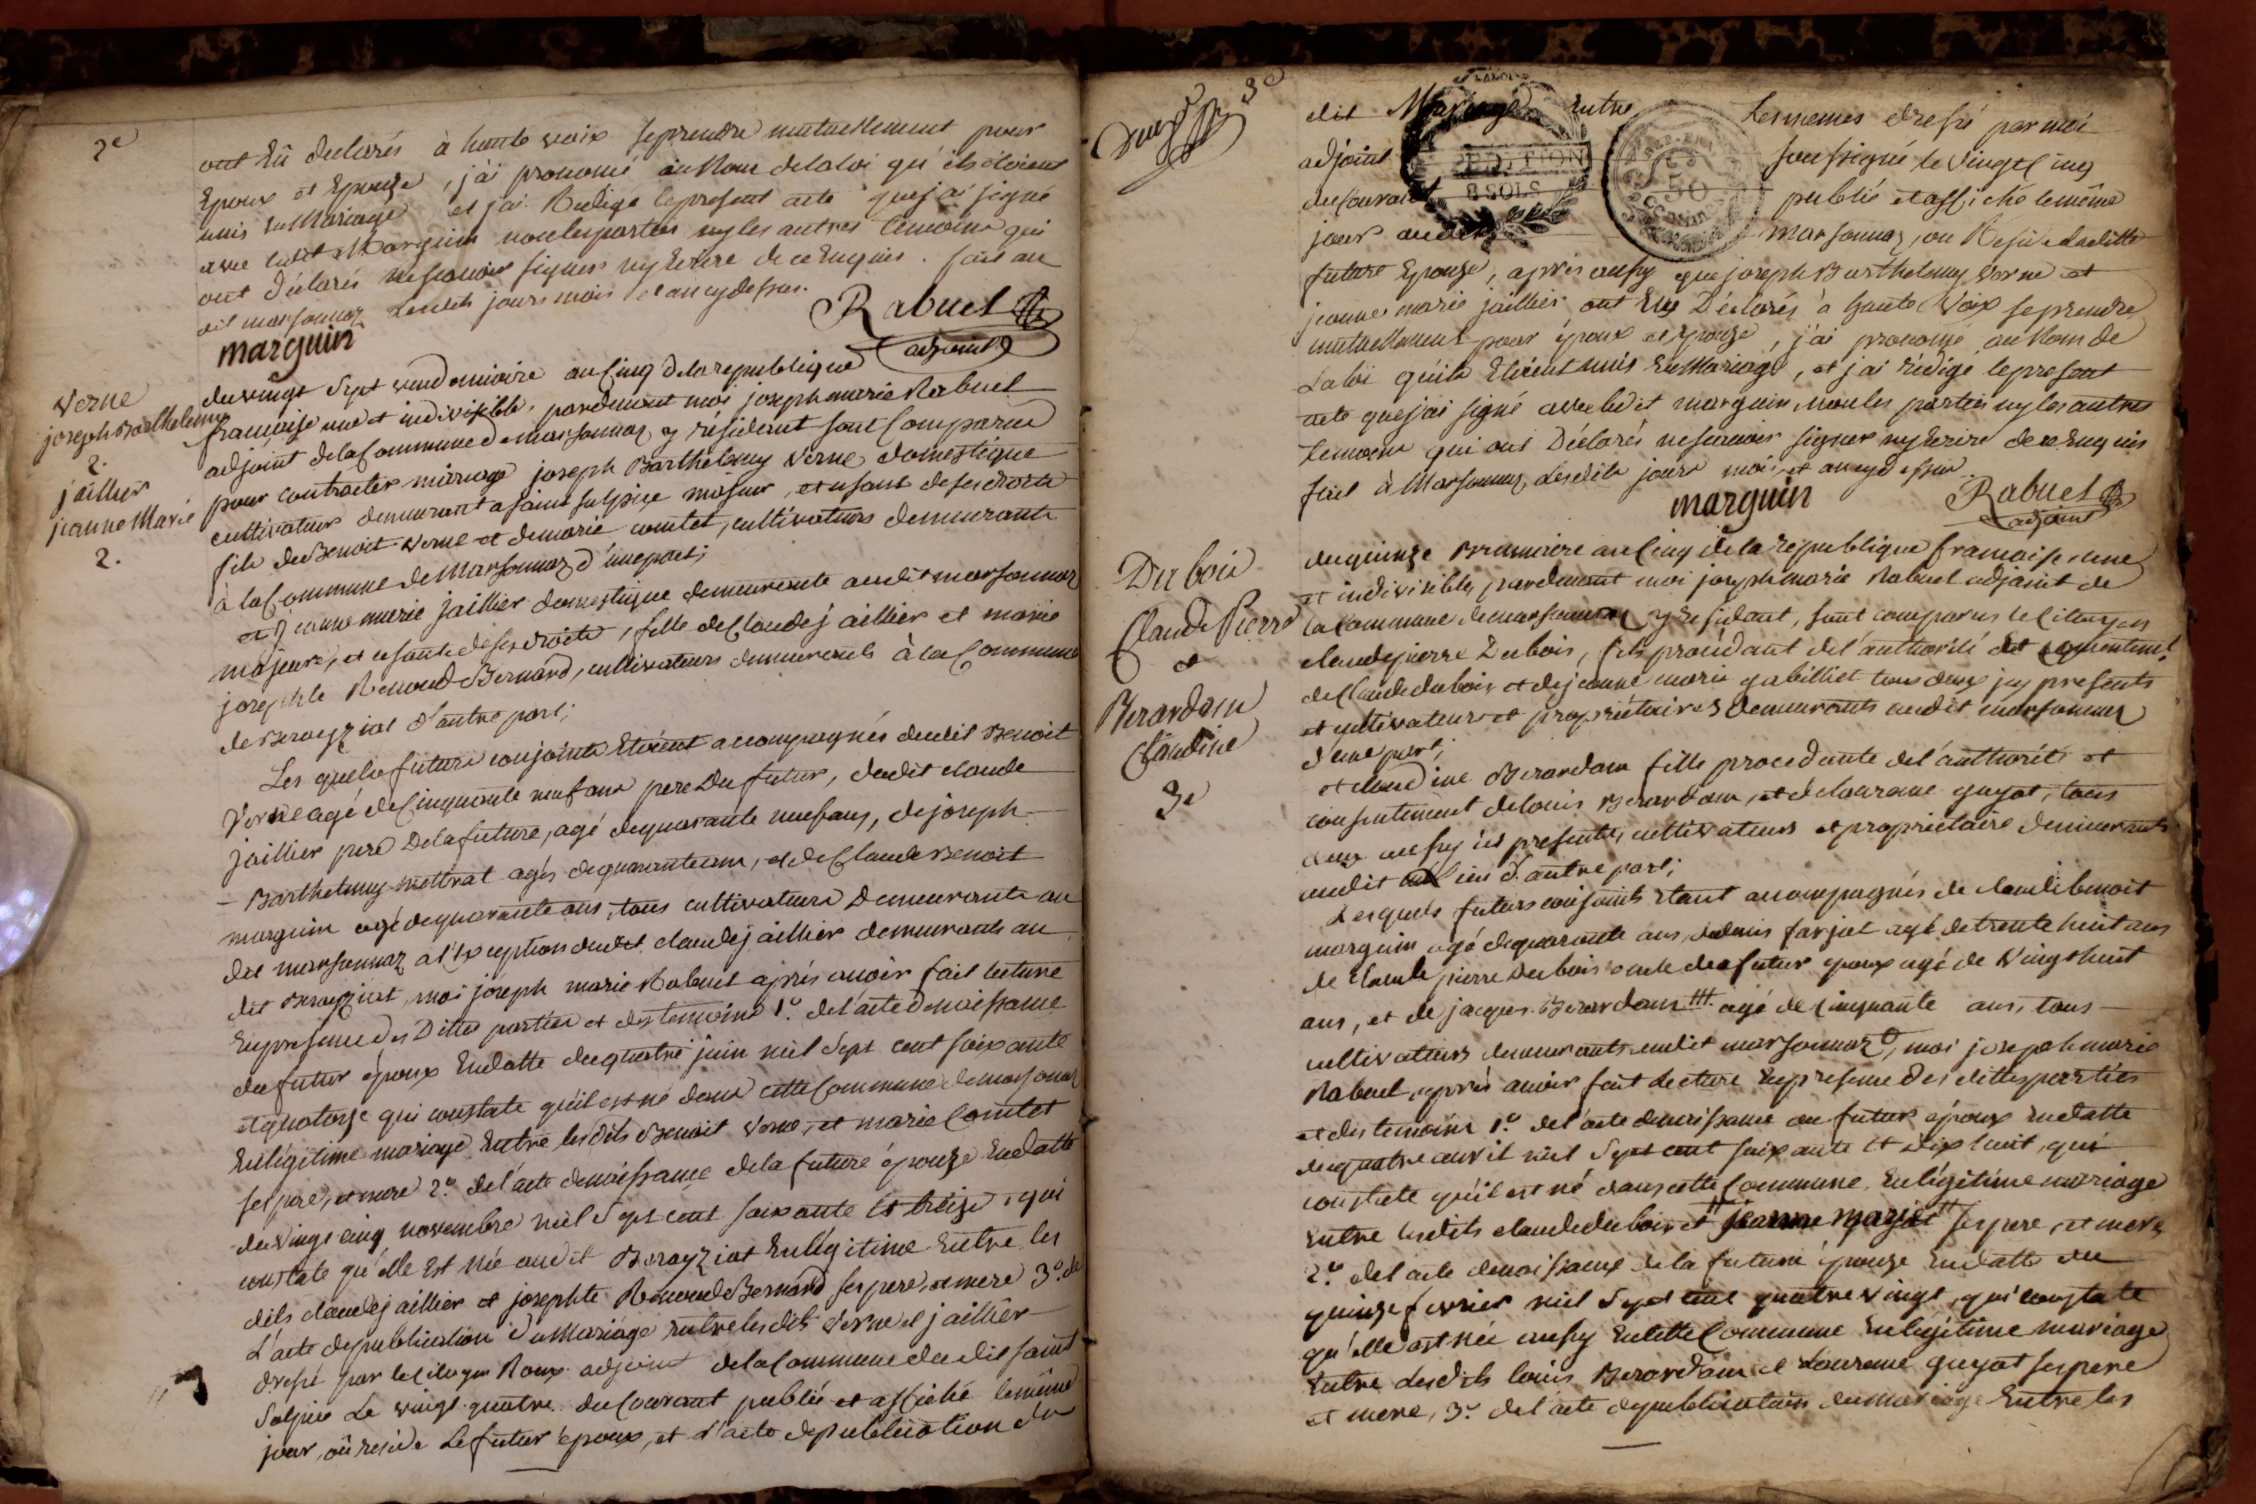 2e
ont Eû declarés à haute voix se prendre mutuellement pour
Epoux et Epouse, j'ai prononcé au Nom de la loi qu'ils étoient
unis En Mariage et j'ai Redigé le present acte que j'ai signé
avec ledit Marguin non les parties ny les autres temoins qui
ont déclarés ne scavoir signer ny Ecrire de ce Enquis. fait au
dit marsonnaz lesdits jours mois et an cy dessus.
Rabuel
marguin
adjoint
Verne
joseph Barthelemy
2.
jaillier
jeanne Marie
2.
du vingt Sept vendemiaire an Cinq de la republique
francaise une et indivisible, pardevant moi joseph marie Rabuel
adjoint de la Commune de Marsonnaz y résident sont Comparus
pour contracter mariage joseph Barthelemy Verne domestique
cultivateur demeurant a saint sulpice majeur, et usant de ses droits
fils de Benoit Verne et de marie comtet, cultivateurs demeurants
à la Commune de Marsonnaz d'une part;
et jeanne marie jaillier domestique demeurante audit marsonnaz
majeure, et usante de ses droits, fille de Claude jaillier et marie
josephte Renoud Bernard, cultivateurs demeurents à la Commune
de Bereyziat d'autre part;
Les quels futurs conjoints Etoient accompagnés dudit Benoit
Verne agé de Cinquante neuf ans pere du futur, dudit claude
jaillier pere De la future, agé de quarante neuf ans, de joseph
Barthelemy mettrat agés de quarante ans, et de Claude Benoit
marguin agé de quarante ans, tous cultivateurs Demeurants au
dit marsonnaz a l'Exception dudit claude jaillier demeurants au
dit Bereyziat, moi joseph marie Rabuel après avoir fait lecture
En presence des Dittes parties et des temoins 1°. de l'acte de naissance
du futur époux En datte du quatre juin mil Sept cent soixante
et quatorze qui constate qu'il est né dans cette Commune de marsonnaz
En légitime mariage Entre les dits Benoit Verne, et marie Comtet
ses pere, et mere 2°. de l'acte de naissance de la future épouse En datte
du vingt cinq novembre mil Sept cent soixante Et treize, qui
constate qu'elle Est née audit Bereyziat En légitime Entre les
dits claude jaillier et josephte Renoud Bernard ses pere, et mere 3°. de
L'acte de publication du Mariage Entre les dits Verne et jaillier
dressé par le Citoyen Roux adjoint de la Commune du dit saint
Sulpice Le vingt quatre du Courant publié et affiché le même
jour, où reside Le futur époux, et l'acte de publication du
3e
dit Mariage Entre Les memes dressé par moi
adjoint soussigné le vingt Cinq
du Courant publié et affiché le même
jour audit marsonnaz, ou Reside la ditte
EDITION
8 SOLS
50
future Epouse, après aussy que joseph Barthelemy Verne et
jeanne marie jaillier ont Eu Déclarés à haute Voix se prendre
mutuellement pour époux et épouse, j'ai prononcé au Nom de
La loi qu'ils Etoient unis En Mariage, et j'ai rédigé le present
acte que j'ai signé avec ledit marguin, non les parties ny les autres
temoins qui ont Déclarés ne scavoir signer ny Ecrire de ce Enquis
fait à Marsonnaz Lesdits jours mois et an cy dessus
marguin
Rabuel
adjoint
Dubois
Claude Pierre
et
Berardan
Claudine
3e
du quinze Brumaire an Cinq de la république francaise une
et indivisible, pardevant moi joseph marie Rabuel adjoint de
la Commune de marsonnaz y residant, sont comparus le Citoyen
claude pierre Dubois, fils procédant de l'authorité et consentement
de Claude dubois et de jeanne marie gabilliet tous deux icy presents
et cultivateurs et proprietaires demeurants audit marsonnaz
d'une part;
et claudine Berardan fille procedante de l'authorité et
consentement de Louis Berardan, et de Laurence guyot, tous
deux aussy ici presents, cultivateurs et proprietaire demeurants
audit lieu d'autre part;
Lesquels futurs conjoints etant accompagnés de claude benoit
marguin agé de quarante ans, de denis farjat agé de trente huit ans
de Claude pierre Dubois oncle du futur époux agé de vingt huit
ans, et de jacques Berardan agé de Cinquante ans, tous
cultivateurs demeurants audit marsonnaz, moi joseph marie
Rabuel, après avoir fait Lecture En presence des dittes parties
et des temoins 1°. de l'acte de naissance du futur époux En datte
du quatre avril mil Sept cent soixante Et dix huit, qui
constate qu'il est né dans cette Commune En légitime mariage
Entre lesdits claude dubois et jeanne marie ses pere, et mere
2°. de l'acte de naissance de la future épouse En datte du
quinze fevrier mil Sept cent quatre vingt, qui constate
qu'elle est née aussy En cette Commune En légitime mariage
Entre lesdits louis Berardan et Laurence guyot ses pere
et mere, 3°. de l'acte de publication du mariage Entre les